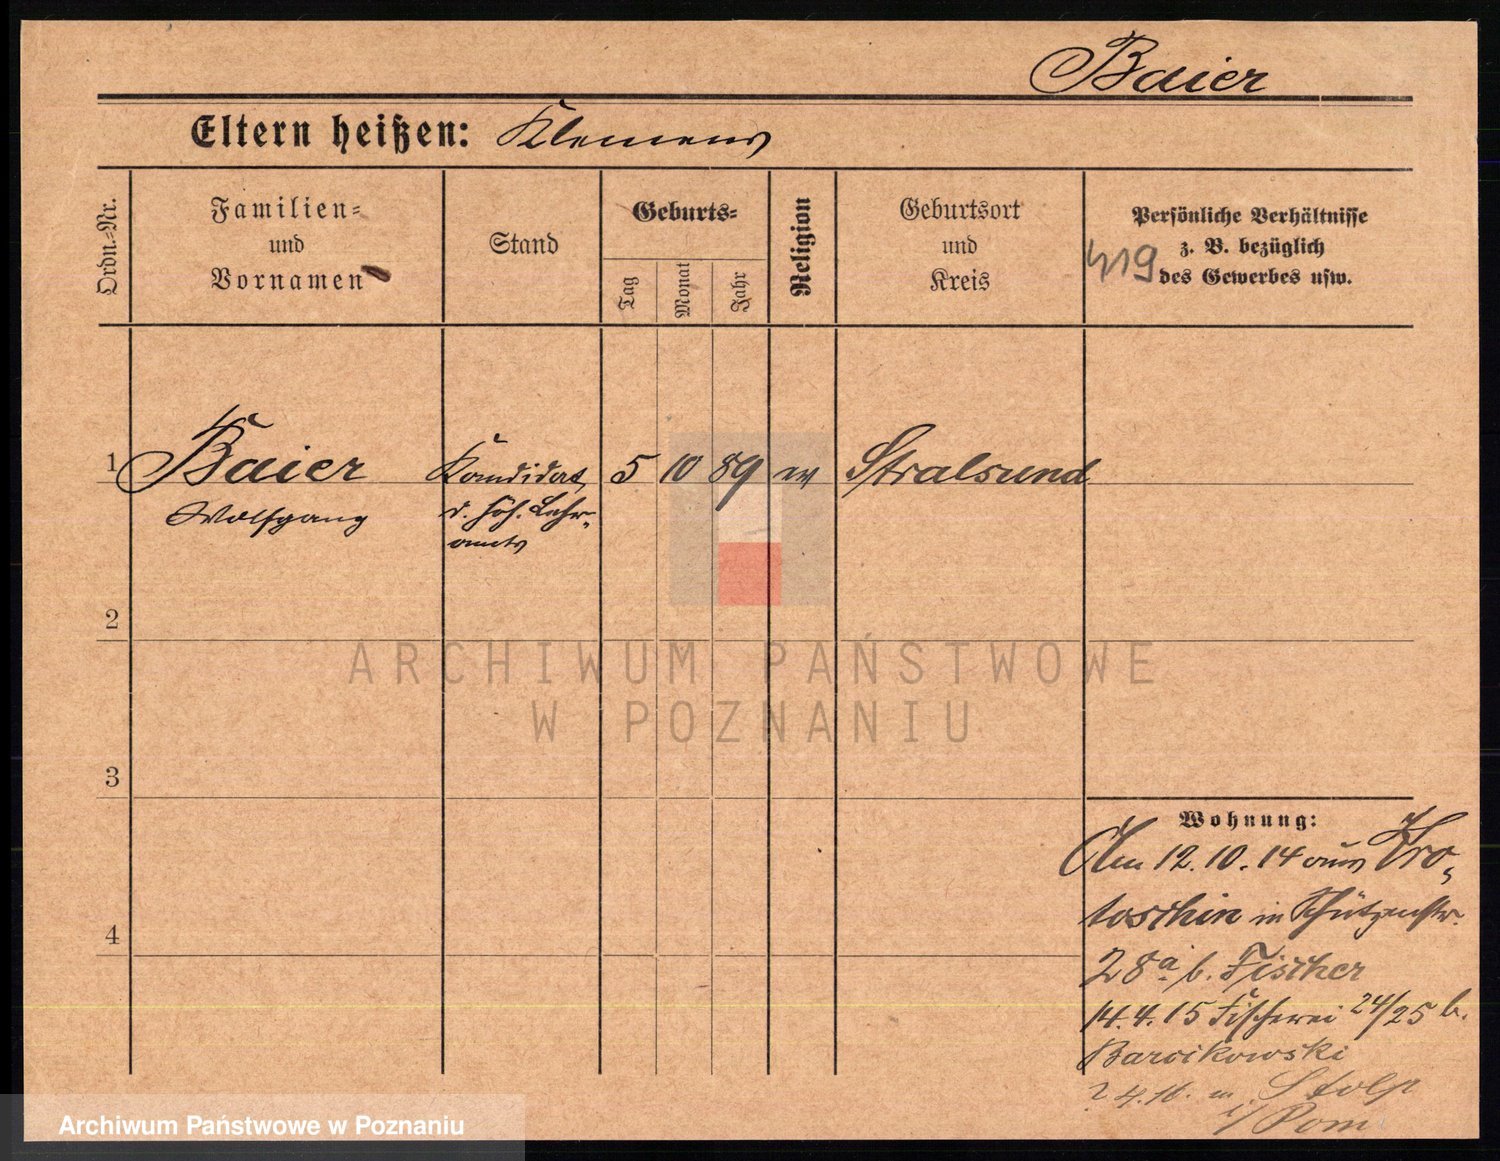 Baier
Eltern heißen: Klemens
Ordn.=Nr.
Familien=
und
Vornamen
Stand
Geburts=
Tag
Monat
Jahr
Religion
Geburtsort
und
Kreis
Persönliche Verhältnisse
z. B. bezüglich
des Gewerbes usw.
419
1
Baier
Wolfgang
Kandidat
d. höh. Lehr-
amts
5 10 89 ev
Stralsund
2
3
4
Wohnung:
Am 12.10.14 aus Kro-
toschin in Schützenstr.
28a b. Fischer
14.4.15 Fischerei 24/25 b.
Barcikowski
2.4.16. n. Stolp
i/Pom
ARCHIWUM PAŃSTWOWE
W POZNANIU
Archiwum Państwowe w Poznaniu